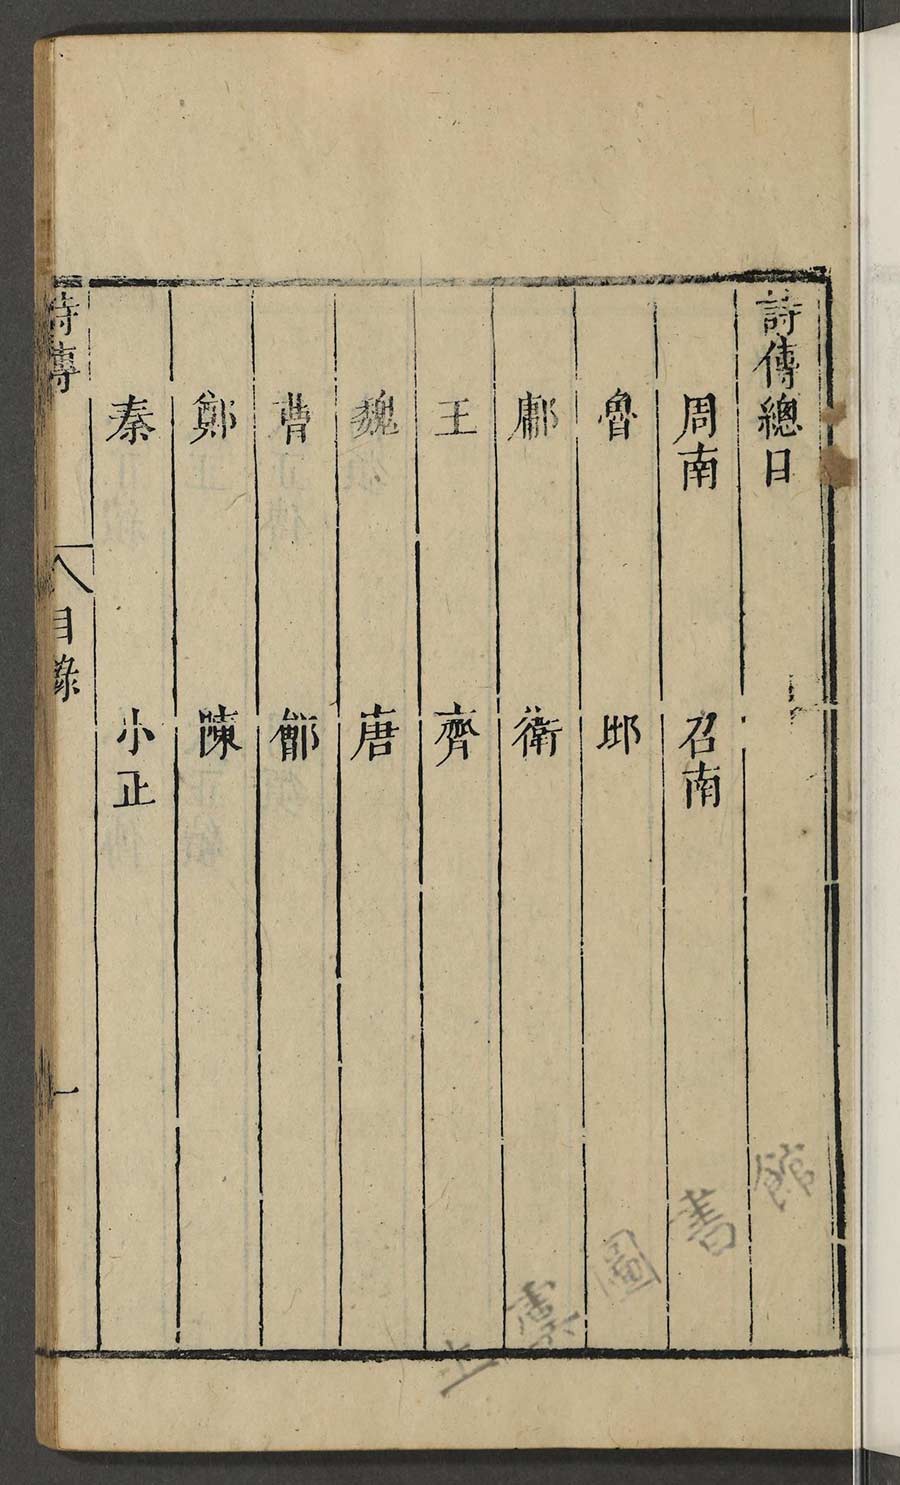 詩傳總日
周南 召南
魯 邶
鄘 衛
王 齊
魏 唐
曹 鄶
鄭 陳
秦 小正
詩傳 目錄 一
上虞圖書館